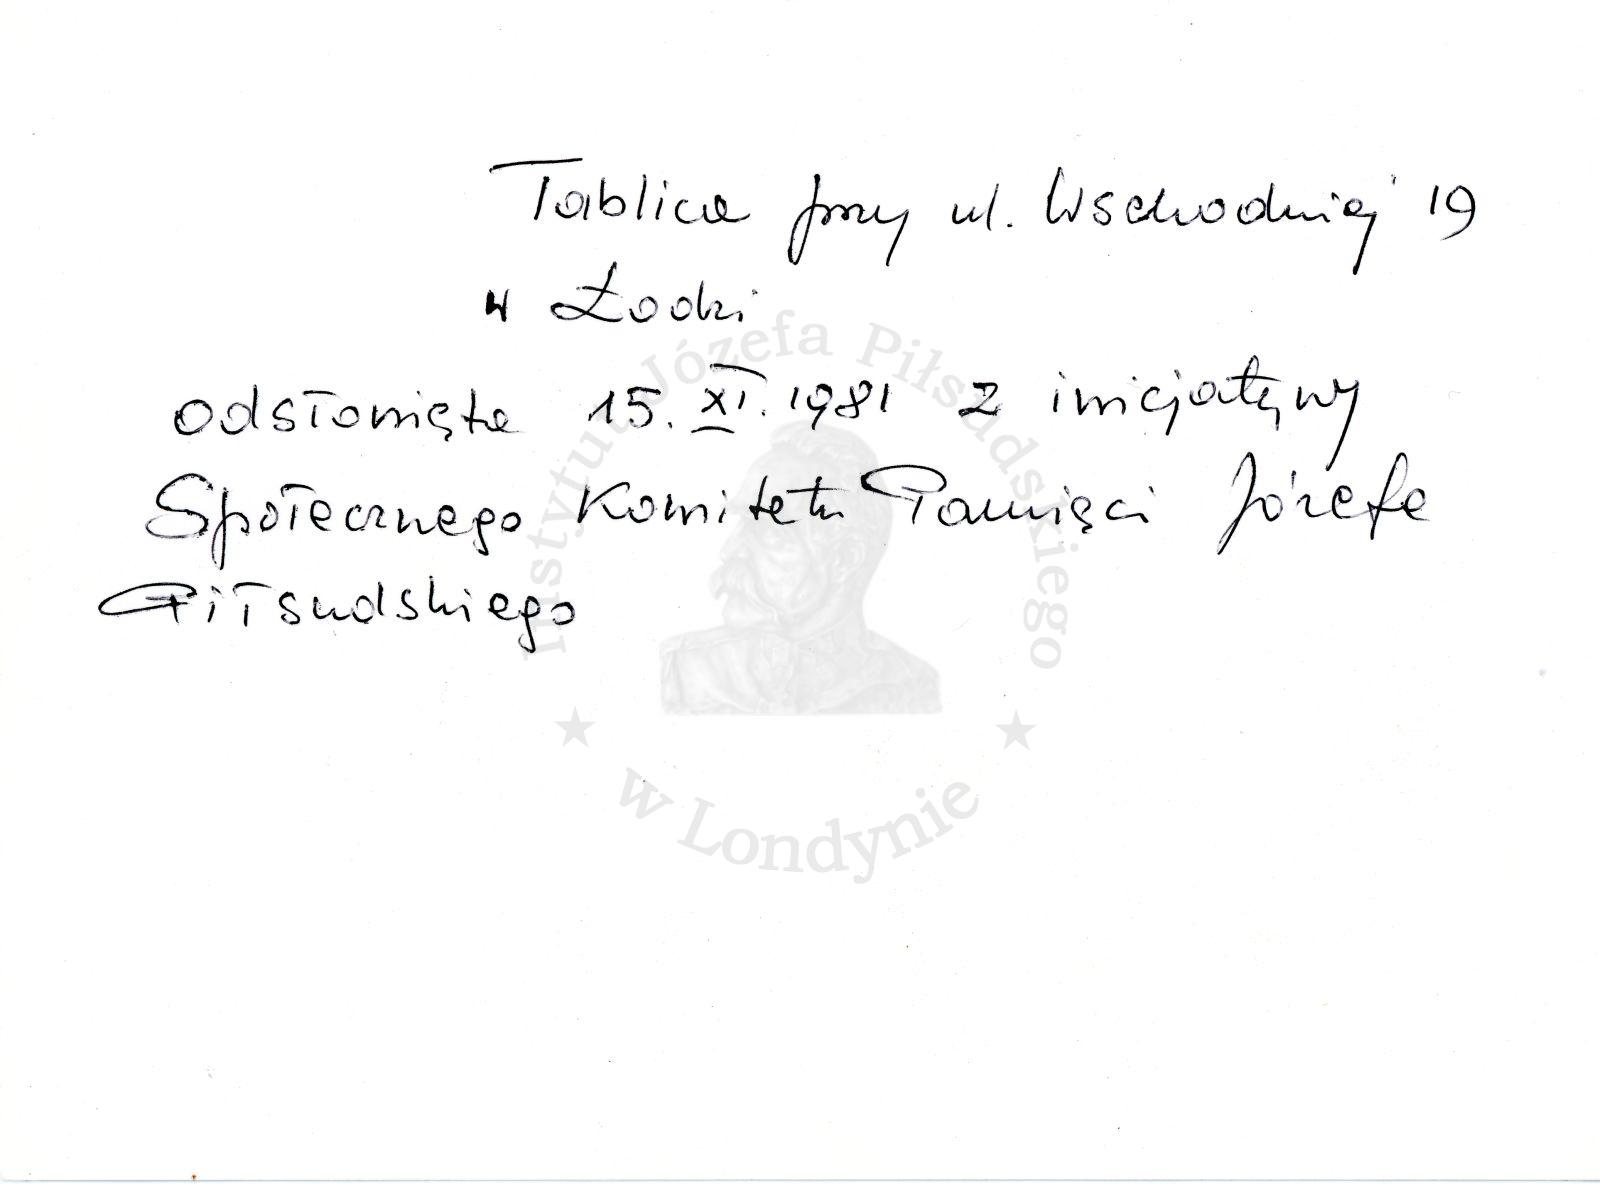 Tablica przy ul. Wschodniej 19
w Łodzi
odsłonięta 15. XI. 1981 z inicjatywy
Społecznego Komitetu Pamięci Józefa
Piłsudskiego
Instytut Józefa Piłsudskiego
w Londynie